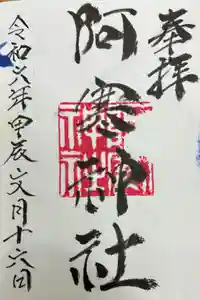 奉拝
阿寒神社
令和六年甲辰文月十六日